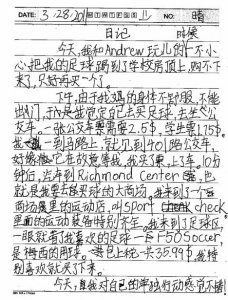 DATE: 3.28.2011 NO: 晴
日记
今天,我和Andrew玩儿的个不小
心把我的足球踢到了学校房顶上,购不下
来了,只好再买一个了。
下午,由于我妈的身体不舒服,不能
出门,于是我觉定自己去买足球,去坐公
交车。一张公交车票需要2.5$,学生票1.75$。
我一到马路上,就见到401路公交车,
好像他它在故意等我,我买了票,上了车,10分
钟后,总算到Richmond Center
就是我要去买球的大商场,我来到了一个
商场里的运动店,叫Sport check
里面的运动装备特别齐全。我来到了足球区,
一眼就看了我喜欢的足球一F50 Soccer,
是梅西的用球。 一共35.99$ 我特
别喜欢就买下来。
今天,真我对自己的单独行动感觉不错!